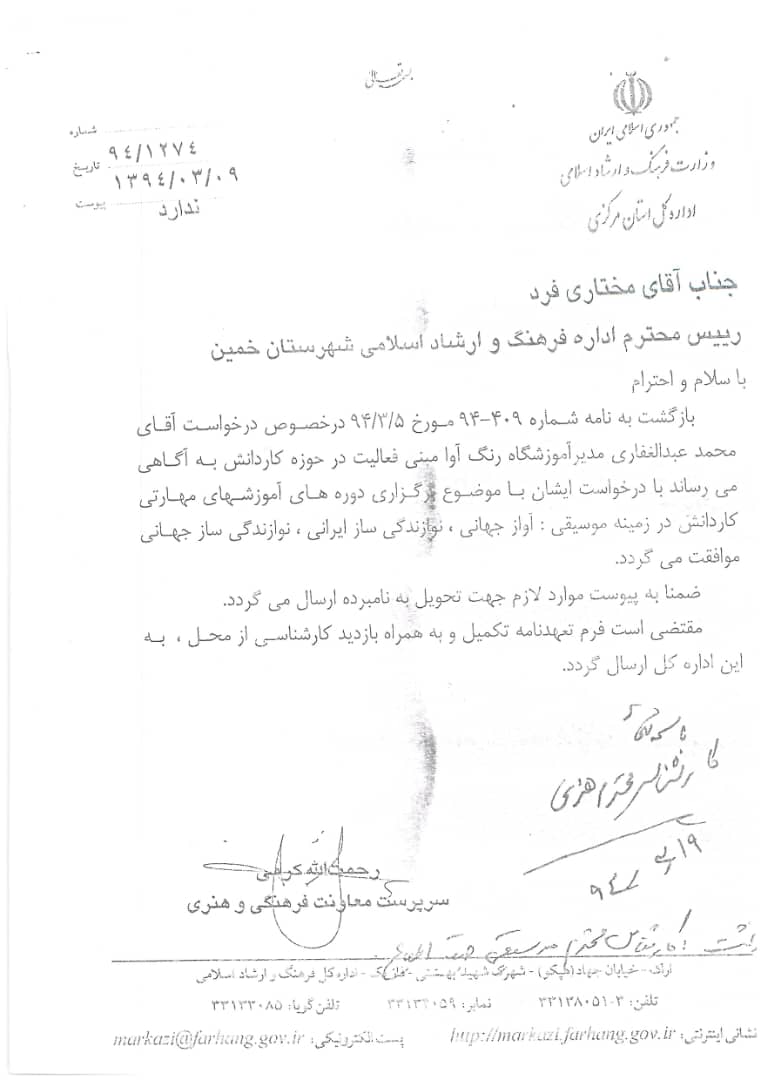 بسمه تعالی
جمهوری اسلامی ایران
وزارت فرهنگ و ارشاد اسلامی
اداره کل استان مرکزی
شماره ۹۴/۱۲۷۴
تاریخ ۱۳۹۴/۰۳/۰۹
پیوست ندارد
جناب آقای مختاری فرد
رییس محترم اداره فرهنگ و ارشاد اسلامی شهرستان خمین
با سلام و احترام
بازگشت به نامه شماره ۴۰۹-۹۴ مورخ ۹۴/۳/۵ درخصوص درخواست آقای
محمد عبدالغفاری مدیرآموزشگاه رنگ آوا مبنی فعالیت در حوزه کاردانش به آگاهی
می رساند با درخواست ایشان با موضوع برگزاری دوره های آموزشهای مهارتی
کاردانش در زمینه موسیقی : آواز جهانی ، نوازندگی ساز ایرانی ، نوازندگی ساز جهانی
موافقت می گردد.
ضمنا به پیوست موارد لازم جهت تحویل به نامبرده ارسال می گردد.
مقتضی است فرم تعهدنامه تکمیل و به همراه بازدید کارشناسی از محل ، به
این اداره کل ارسال گردد.
باسمه تعالی
کارشناس محترم هنری
رحمت الله کرمی
سرپرست معاونت فرهنگی و هنری
کارشناس محترم موسیقی جهت اطلاع
اراک - خیابان جهاد (هپکو) - شهرک شهید بهشتی - - اداره کل فرهنگ و ارشاد اسلامی
تلفن: ۳-۳۳۱۳۸۰۵۱ نمابر: ۳۳۱۳۳۰۵۹ تلفن گویا: ۳۳۱۳۳۰۸۵
نشانی اینترنتی: http://markazi.farhang.gov.ir پست الکترونیکی: markazi@farhang.gov.ir